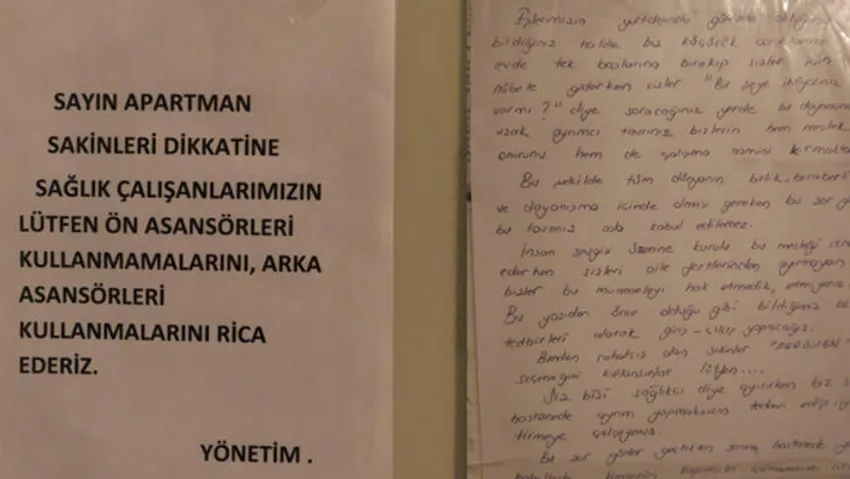 SAYIN APARTMAN
SAKİNLERİ DİKKATİNE
SAĞLIK ÇALIŞANLARIMIZIN
LÜTFEN ÖN ASANSÖRLERİ
KULLANMAMALARINI, ARKA
ASANSÖRLERİ
KULLANMALARINI RİCA
EDERİZ.
YÖNETİM .
yurtdışında görevde olduğunu
bildiğiniz halde biz küçücük
evde tek başlarına bırakıp sizler için
nöbete giderken sizler "Bir şeye ihtiyacınız
varmı?" diye soracağınız yerde bu
uzak ayrımcı tavrınız bizlerin hem meslek
onurunu hem de çalışma azmini
Bu şekilde tüm dünyanın birlik, beraberlik
ve dayanışma içinde olması gereken bu zor
bu tavrınız asla kabul edilemez.
İnsan sevgisi üzerine kurulu bu mesleği
ederken sizleri aile fertlerinden ayırmayan
bizler bu muameleyi hak etmedik, etmiyoruz.
Bu yazıdan önce olduğu gibi bildiğiniz
tedbirleri alarak giriş-çıkış yapacağız.
Bundan rahatsız olan sakinler "MERDİVEN"
seçeneğini kullansınlar lütfen....
Siz bizi sağlıkçı diye ayırırken biz
hastanede ayrım yapmaksızın tedavi edip,
çalışıyoruz.
Bu zor günler geçtikten sonra hastanede